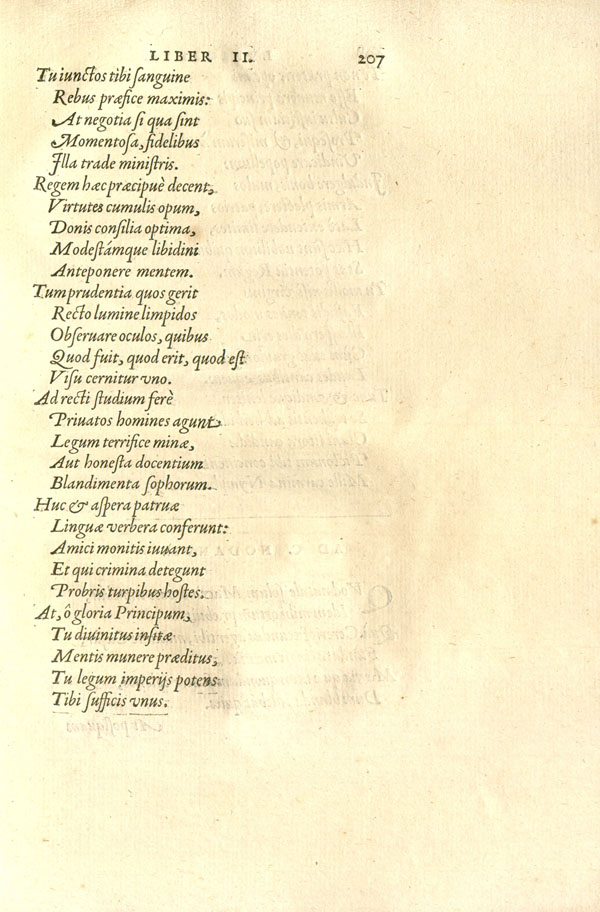 LIBER II. 207
Tu iunctos tibi sanguine
Rebus præfice maximis:
At negotia si qua sint
Momentosa, fidelibus
Illa trade ministris.
Regem hæc præcipuè decent,
Virtutes cumulis opum,
Donis consilia optima,
Modestámque libidini
Anteponere mentem.
Tum prudentia quos gerit
Recto lumine limpidos
Obseruare oculos, quibus
Quod fuit, quod erit, quod est
Visu cernitur vno.
Ad recti studium ferè
Priuatos homines agunt
Legum terrificæ minæ,
Aut honesta docentium
Blandimenta sophorum.
Huc & aspera patruæ
Linguæ verbera conferunt:
Amici monitis iuuant,
Et qui crimina detegunt
Probris turpibus hostes.
At, ô gloria Principum,
Tu diuinitus insitæ
Mentis munere præditus,
Tu legum imperijs potens
Tibi sufficis vnus.